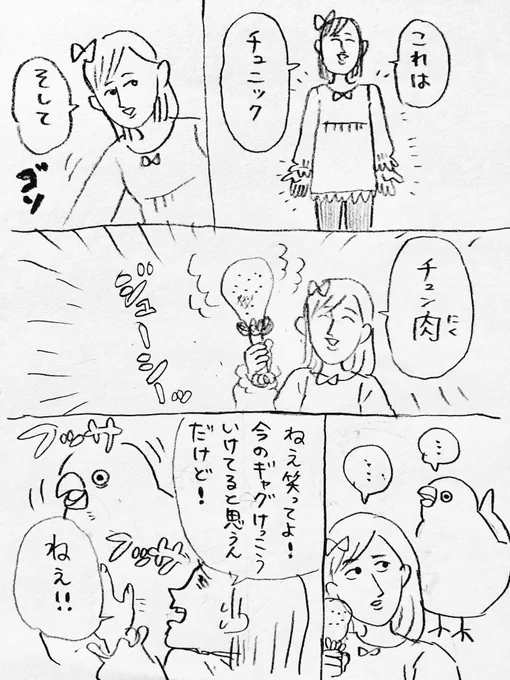 これは
チュニック
そして
ゴソ
チュン肉
にく
ジューシーッ
…
…
ねえ笑ってよ！
今のギャグけっこう
いけてると思うん
だけど！
ユッサ
ユッサ
ねぇ！！